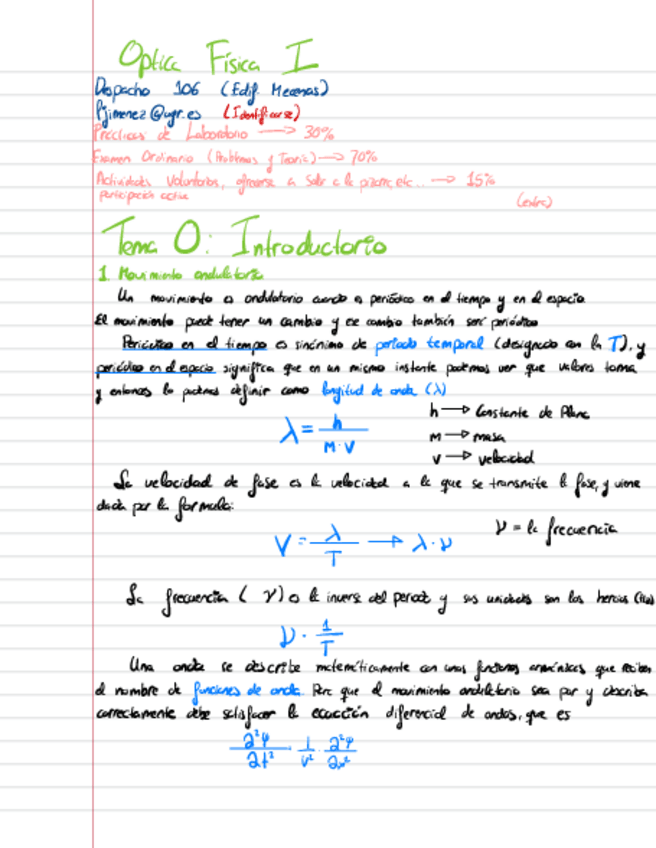 Optica Física I
Despacho 106 (Edif. Mecenas)
Pjimenez@ugr.es (Identificarse)
Prácticas de Laboratorio → 30%
Examen Ordinario (Problemas y Teoría) → 70%
Actividades Voluntarias, ofrecerse a salir a la pizarra, etc... → 15%
participación activa (extra)
Tema 0: Introductorio
1. Movimiento ondulatorio
Un movimiento es ondulatorio cuando es periódico en el tiempo y en el espacio.
El movimiento puede tener un cambio y ese cambio también será periódico
Periódico en el tiempo es sinónimo de período temporal (designado con la T), y
periódico en el espacio significa que en un mismo instante podemos ver que valores toma
y entonces lo podemos definir como longitud de onda (λ)
λ = h / M·V
h → Constante de Planc
M → masa
V → velocidad
La velocidad de fase es la velocidad a la que se transmite la fase, y viene
dada por la formula:
V = λ / T → λ·ν
ν = la frecuencia
La frecuencia (ν) es la inversa del periodo y sus unidades son los hercios (Hz)
ν · 1 / T
Una onda se describe matemáticamente con unas funciones armónicas que reciben
el nombre de funciones de onda. Para que el movimiento ondulatorio sea par y describa
correctamente debe satisfacer la ecuación diferencial de ondas, que es
∂²Ψ / ∂t² · 1 / v² ∂²Ψ / ∂x²